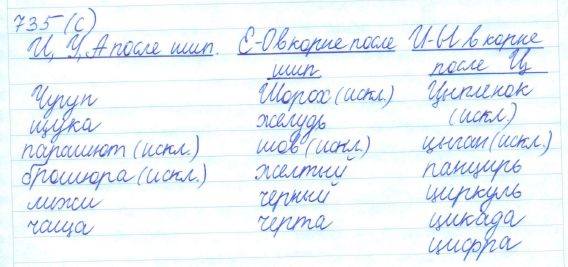 735 (с)
И, У, А после шип. Е-О в корне после шип. И-Ы в корне после Ц
Шорох (искл.) Цыпленок
щука желудь (искл.)
парашют (искл.) шов (искл.) цыган (искл.)
брошюра (искл.) желтый панцирь
лыжи черный циркуль
чаща черта цикада
цифра